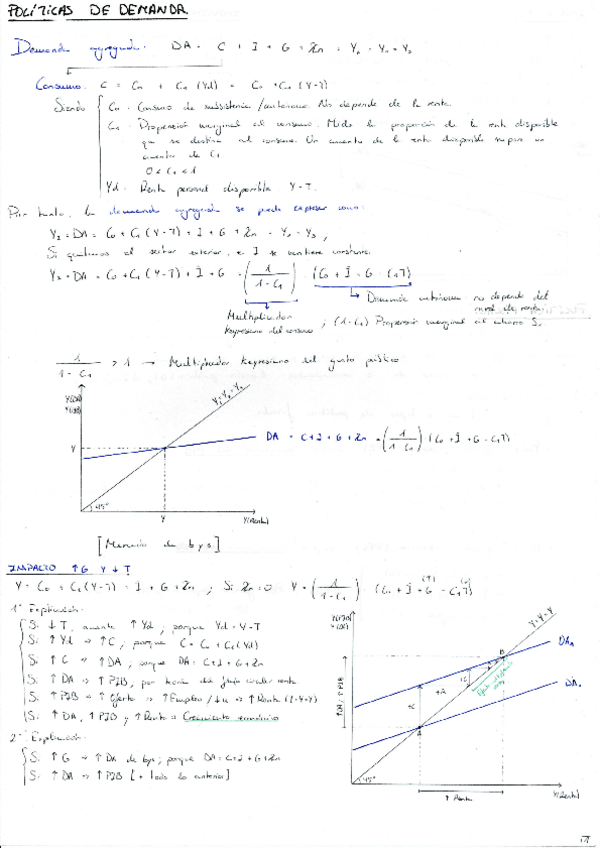 POLÍTICAS DE DEMANDA
Demanda agregada. DA = C + I + G + Xn = Y
Consumo: C = C0 + C1 (Yd) = C0 + C1 (Y-T)
Siendo
C0 = Consumo de subsistencia/autónomo. No depende de la renta.
C1 = Propensión marginal al consumo. Mide la proporción de la renta disponible
que se destina al consumo. Un aumento de la renta disponible supone un
aumento de C1
0 < C1 < 1
Yd = Renta personal disponible Y-T.
Por tanto, la demanda agregada se puede expresar como:
Y3 = DA = C0 + C1 (Y-T) + I + G + Xn
Si quitamos el sector exterior, e I se mantiene constante.
Y3 = DA = C0 + C1 (Y-T) + I + G = (1 / 1-C1) · (C0 + I + G - C1T)
Demanda autónoma no depende del
nivel de renta
Multiplicador
Keynesiano del consumo ; (1-C1) Propensión marginal al ahorro S.
1 / 1-C1 > 1 → Multiplicador Keynesiano del gasto público
DA = C+I+G+Xn = (1 / 1-C1) (C0 + I + G - C1T)
Y
45°
Y
Y(Renta)
[Mercado de bys]
IMPACTO ↑G Y ↓T
Y = C0 + C1(Y-T) + I + G + Xn ; Si Xn=0 Y = (1 / 1-C1) · (C0 + I + G - C1T)
1ª Explicación.
Si ↓T, aumenta ↑Yd, porque Yd = Y-T
Si ↑Yd → ↑C, porque C = C0 + C1(Yd)
Si ↑C → ↑DA, porque DA = C+I+G+Xn
Si ↑DA → ↑PIB, por teoría del flujo circular renta
Si ↑PIB → ↑Oferta → ↑Empleo/↓u → ↑Renta
Si ↑DA, ↑PIB y ↑Renta = Crecimiento económico
2ª Explicación.
Si ↑G → ↑DA de bys, porque DA = C+I+G+Xn
Si ↑DA → ↑PIB [+ todo lo anterior]
↑DA, ↑PIB
DA1
DA0
A
B
45°
Y(Renta)
↑ Renta